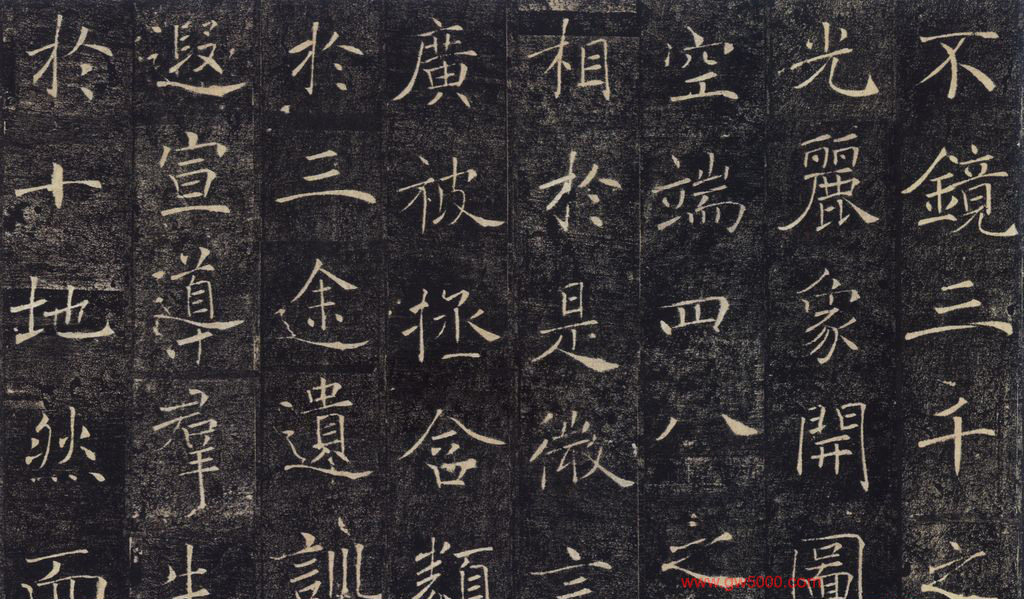 不鏡三千之
光麗象開圖
空端四八之
相於是微言
廣被拯含類
於三途遺訓
遐宣導羣生
於十地然而
www.gw5000.com